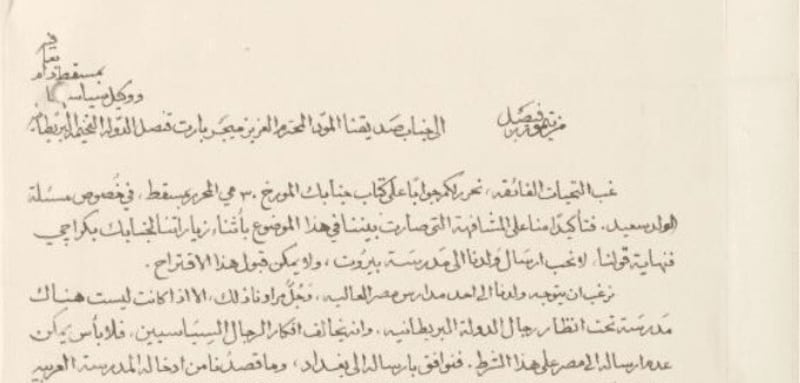 بمسقط دام
ووكل سياسي
من تيمور بن فيصل الى جناب صديقنا المود المحترم العزيز ميجر بارت قنصل الدولة الفخيمة البريطانية
غب التحيات الفائقه، نحرر لكم جوابًا على كتاب جنابك المورخ ٣٠ مي المحرر بمسقط، في خصوص مسئلة
الولد سعيد. فتأكيدًا منا على المشافهة التي صارت بيننا في هذا الموضوع بأثناء زياراتنا لجنابك بكراچي
فنهاية قولنا، لا نحب ارسال ولدنا الى مدرسة بيروت، ولا يمكن قبول هذا الاقتراح.
نرغب ان يتوجه ولدنا الى احد مدارس مصر العاليه، وجُلّ مراونا ذلك، الا اذا كانت ليست هناك
مدرسة تحت انظار رجال الدولة البريطانيه. وانه يخالف افكار الرجال السياسيين، فلا بأس يمكن
عدم ارساله الى مصر على هذا الشرط. فنوافق بارساله الى بغداد، وما قصدنا من ادخاله المدرسة العربيه